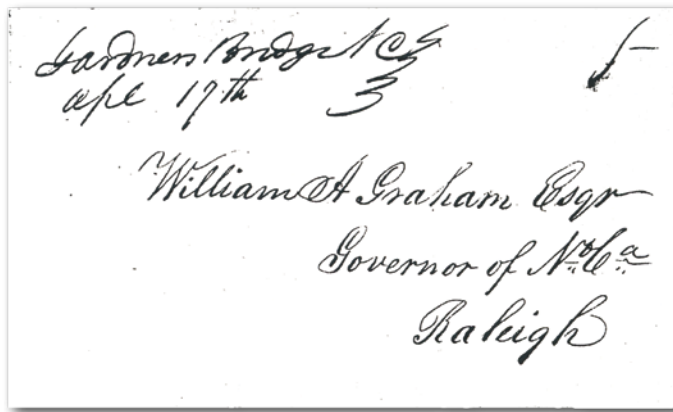 Gardners Bridge N C
5
Apl 17th
William A Graham Esqr
Governor of No Ca
Raleigh